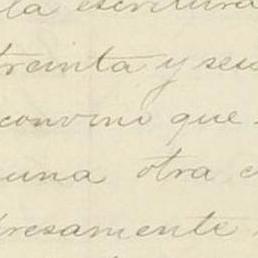 la escritura
treinta y seis
convino que
una otra
presamente